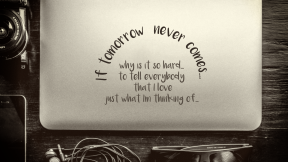 If tomorrow never comes...
why is it so hard...
to tell everybody
that I love
just what Im thinking of...